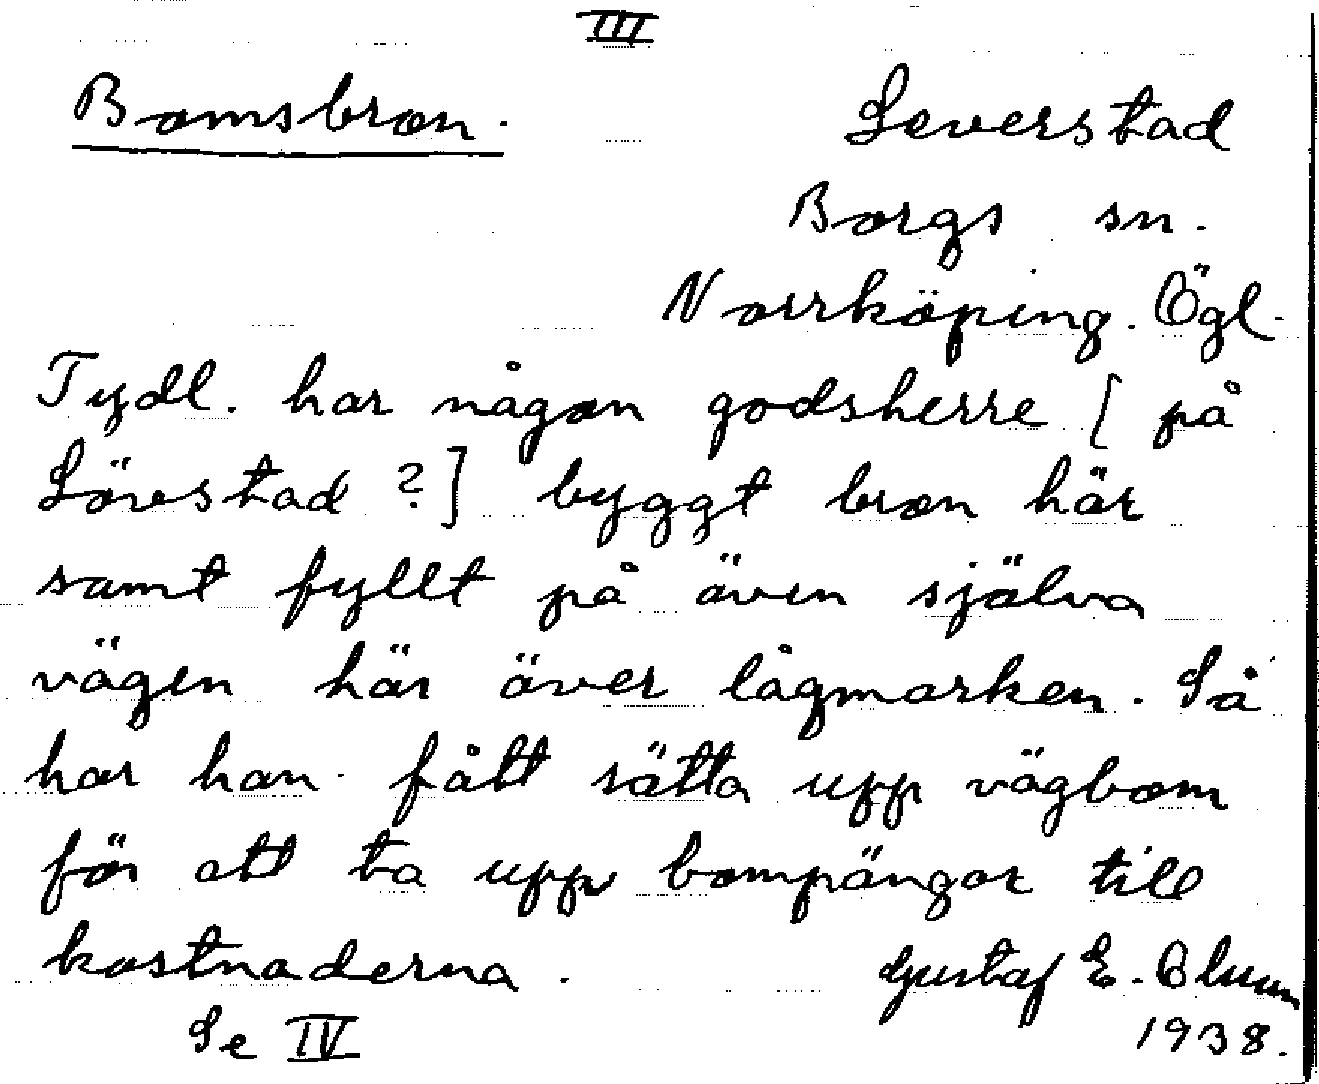 III
Bomsbron.
Leverstad
Borgs sn.
Norrköping. Ögl.
Tydl. har någon godsherre [på
Lövestad?] byggt bron här
samt fyllt på även själva
vägen här över lågmarken. Så
har han fått sätta upp vägbom
för att ta upp bompängar till
kostnaderna.
Gustaf E.
Se IV
1938.